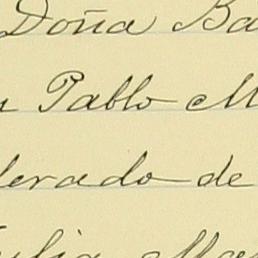 Doña Ba
Pablo M
derado de
Julia Mar